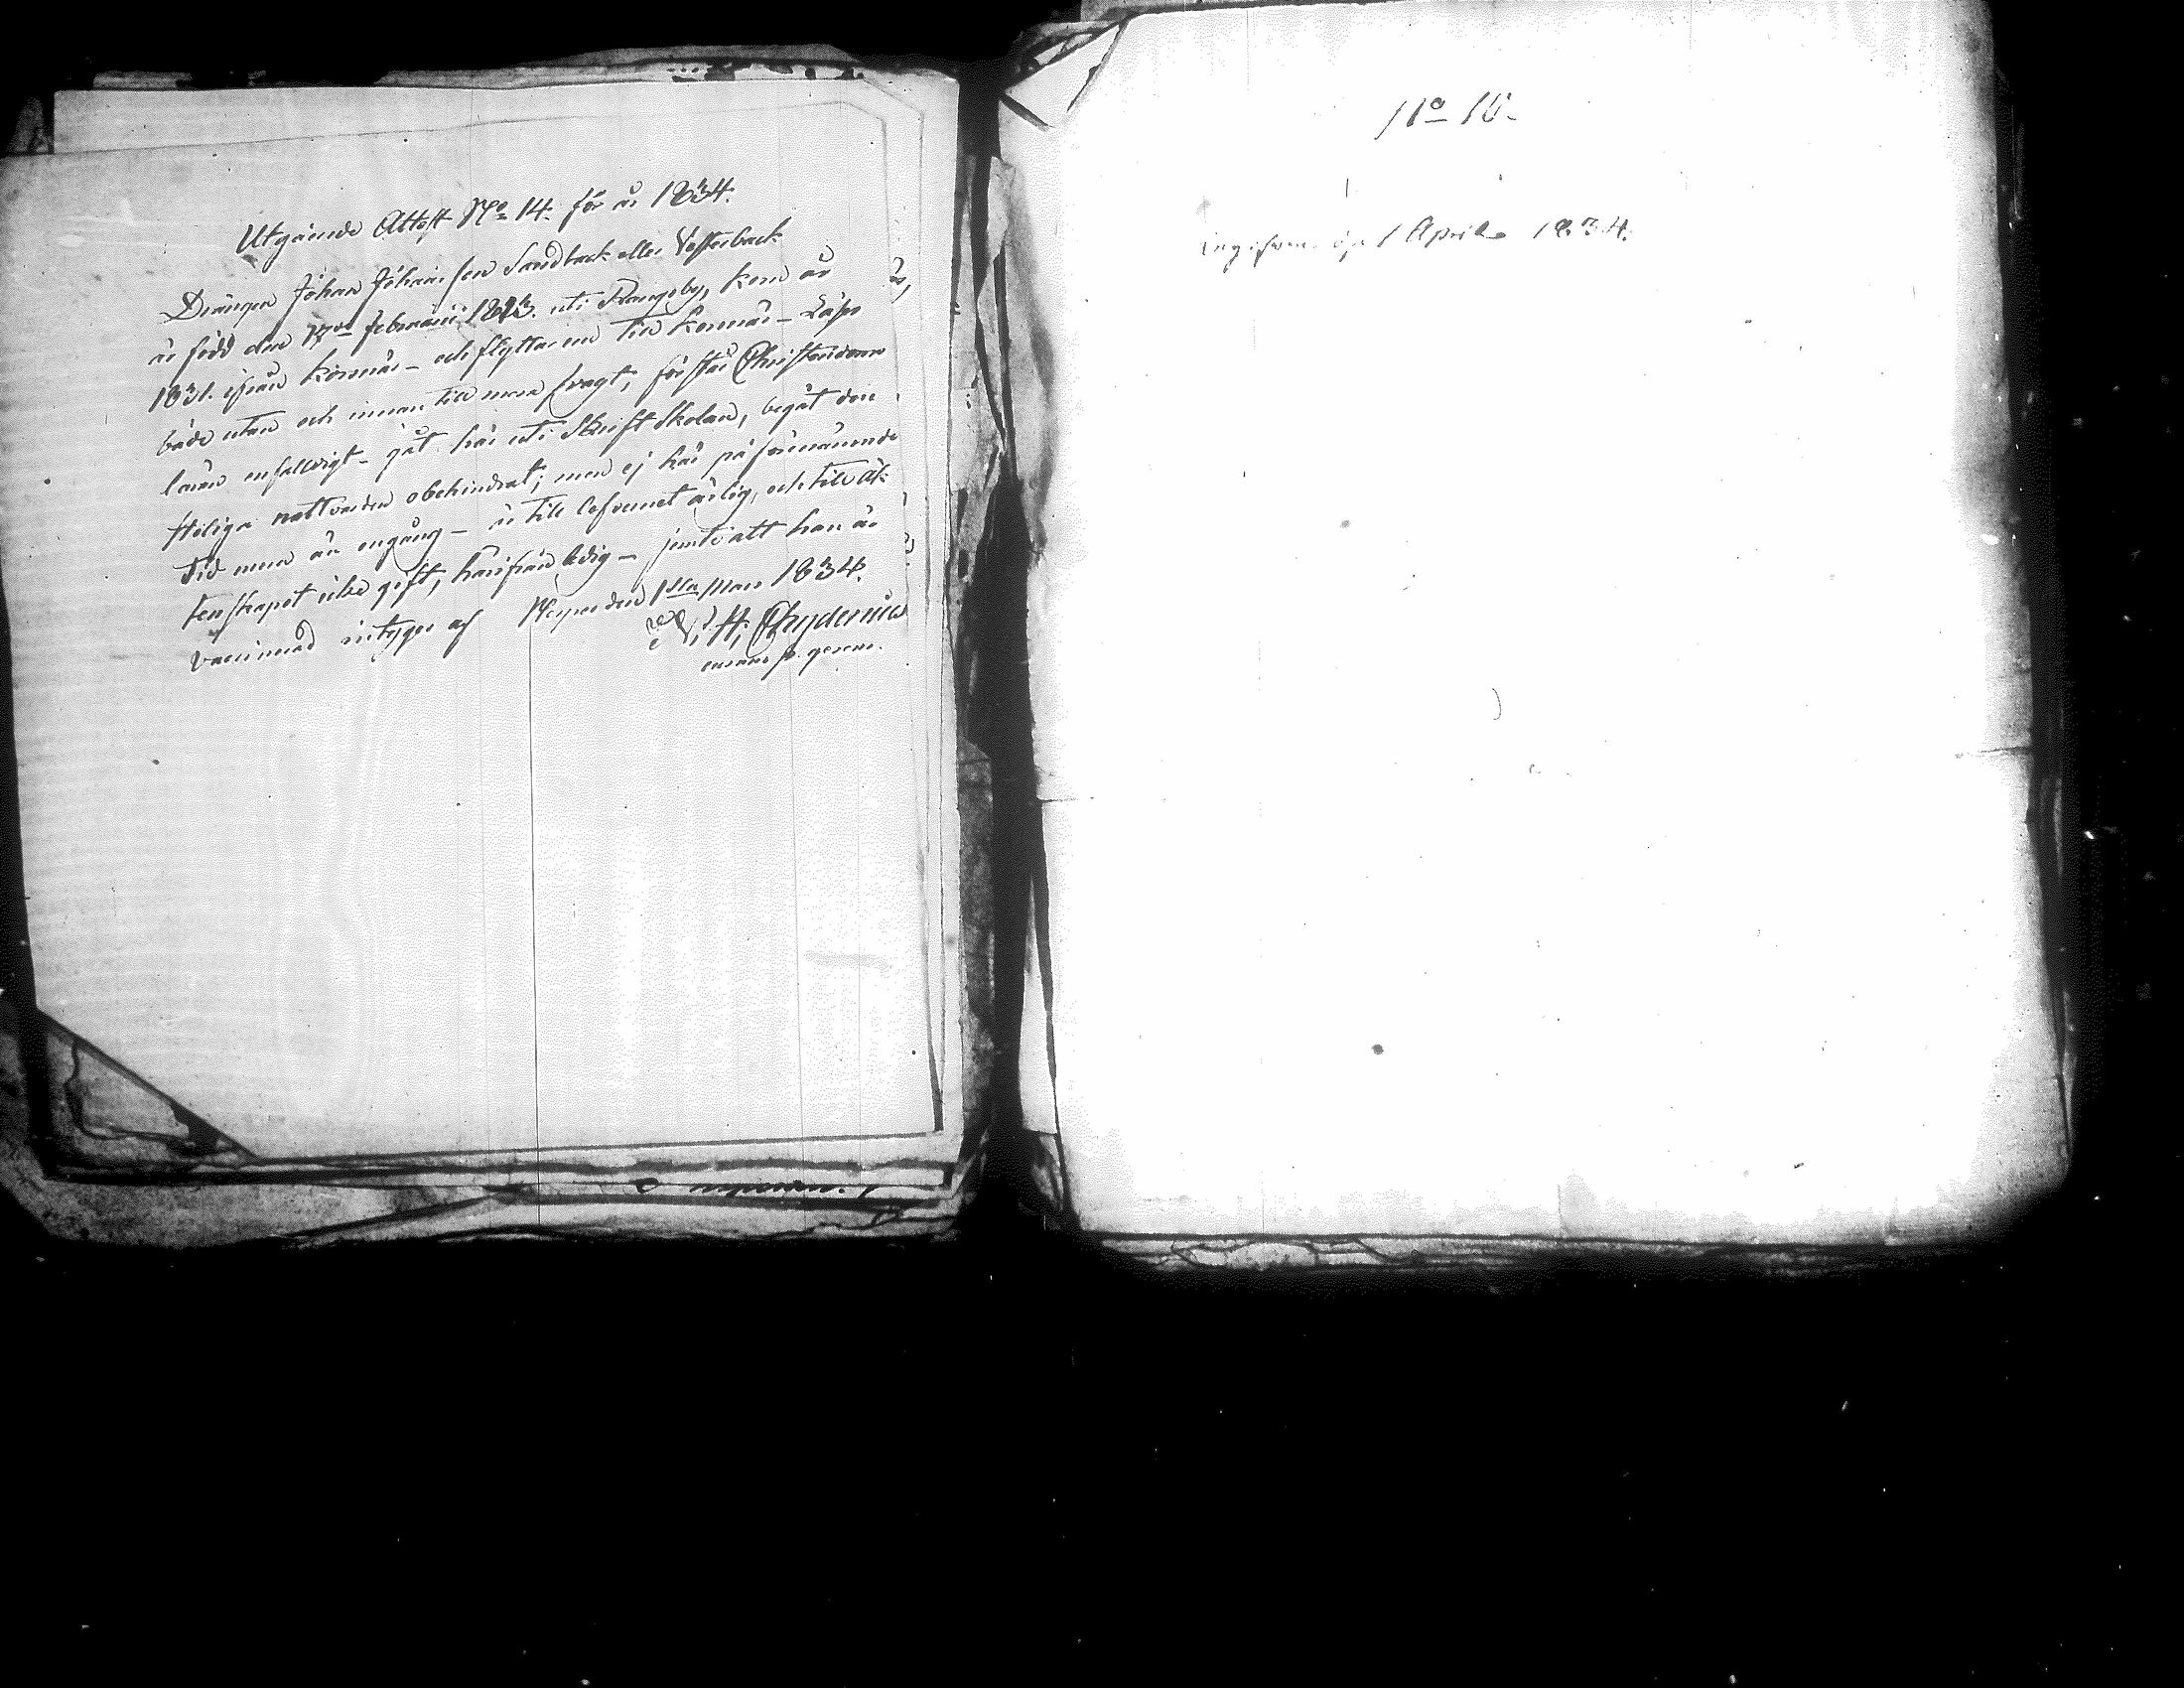 Utgående Attest No 14. för år 1834.
Drängen Johan Johansson Sandback eller Vesterback
är född den 17de februarii 1813. uti Rangsby, kom år
1831. ifrån Korsnäs – och flyttar nu till Korsnäs – Läser
både utan och innan till men svagt, förstår Christendoms
läran enfaldigt – gåt här uti Skriftskolan, begåt den
Heliga nattvarden obehindrat; men ej här på förenämnde
tid mera än engång – är till lefvernet ärlig, och till äk-
tenskapet icke gift, härifrån ledig – jemte att han är
vaccinerad intygar af Nerpes den 1sta Mars 1834.
H. Chydenius
No 10.
ingifven den 1 April 1834.